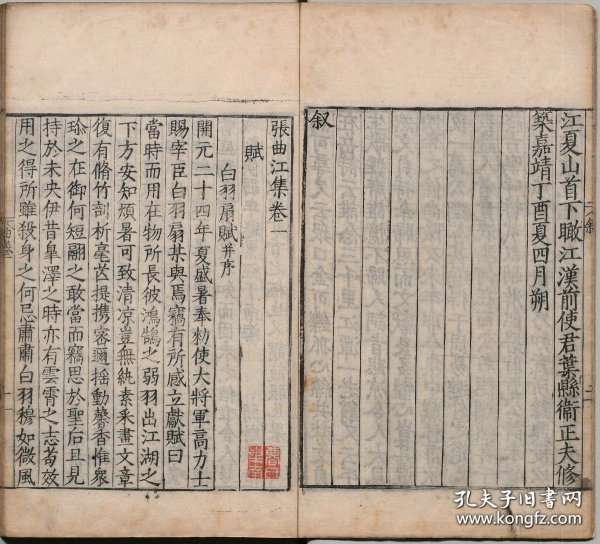 江夏山首下瞰江漢前使君葉縣衞正夫修
築嘉靖丁酉夏四月朔
叙
張曲江集卷一
賦
白羽扇賦并序
開元二十四年夏盛暑奉勑使大將軍高力士
賜宰臣白羽扇某與焉竊有所感立獻賦曰
當時而用在物所長彼鴻鵠之弱羽出江湖之
下方安知煩暑可致清凉豈無紈素采畫文章
復有脩竹剖析毫芒提携密邇揺動馨香惟衆
珍之在御何短翮之敢當而竊思於聖后且見
持於未央伊昔皐澤之時亦有雲霄之志苟效
用之得所雖殺身之何忌肅肅白羽穆如微風
孔夫子旧书网
www.kongfz.com